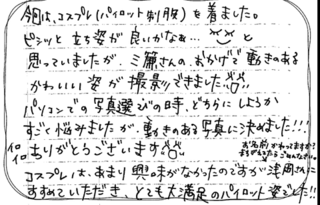 今回は、コスプレ(パイロット制服)を着ました。
ピシッと立ち姿が良いかなぁ…と
思っていましたが、三簾さんの、おかげで動きのある
かわいい姿が撮影できました!!
パソコンでの写真選びの時、どちらにしようか
すごく悩みましたが、動きのある写真に決めました!!!
ありがとうございます
お名前がわってますか?
まちがえてたらごめんなさい。
コスプレは、あまり興味がなかったのですが津岡さんに
すすめていただき、とても大満足のパイロット姿でした!!